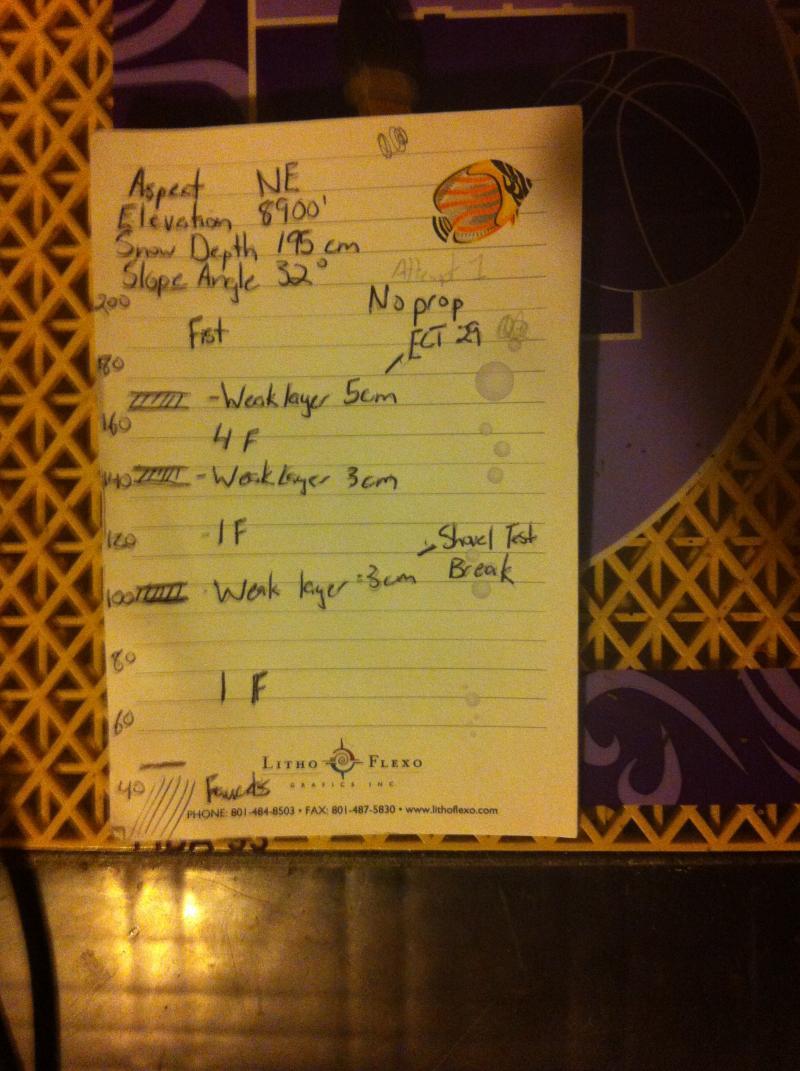 Aspect NE
Elevation 8900'
Snow Depth 195 cm
Slope Angle 32°
Attempt 1
200
No prop
Fist
ECT 29
180
-Weak layer 5cm
160
4 F
140 - Weak layer 3cm
120 - 1 F
Shovel Test
Break
100 - Weak layer 3cm
80
1 F
60
LITHO FLEXO
GRAPHICS INC.
40
PHONE: 801-484-8503 • FAX: 801-487-5830 • www.lithoflexo.com